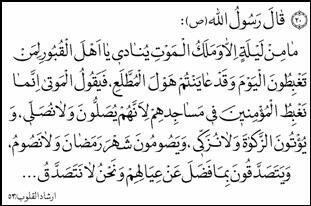 ٢٠ قٰالَ رَسُولُ اللّٰه (ص):
مٰا مِنْ لَيْلَةٍ اِلاّٰ وَ مَلَكُ الْمَوْتِ يُنٰادي يٰا اَهْلَ الْقُبُورِ لِمَنْ
تَغْبِطُونَ الْيَوْمَ وَ قَدْ عٰايَنْتُمْ هَوْلَ الْمُطَّلَعِ، فَيَقُولُ الْمَوْتىٰ اِنَّمٰا
نَغْبِطُ الْمُؤْمِنينَ في مَسٰاجِدِهِمْ لِاَنَّهُمْ يُصَلُّونَ وَ لاٰ نُصَلّي، وَ
يُؤْتُونَ الزَّكٰوةَ وَ لاٰ نُزَكّي، وَ يَصُومُونَ شَهْرَ رَمَضٰانَ وَ لاٰ نَصُومُ،
وَ يَتَصَدَّقُونَ بِمٰا فَضَلَ عَنْ عِيٰالِهِمْ وَ نَحْنُ لاٰ نَتَصَدَّقُ ...
ارشاد القلوب/٥٣